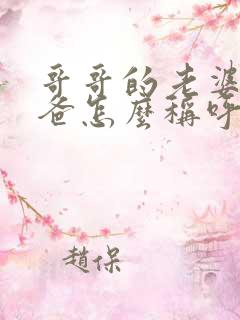 哥哥的老婆
爸怎麼稱呼
趙保